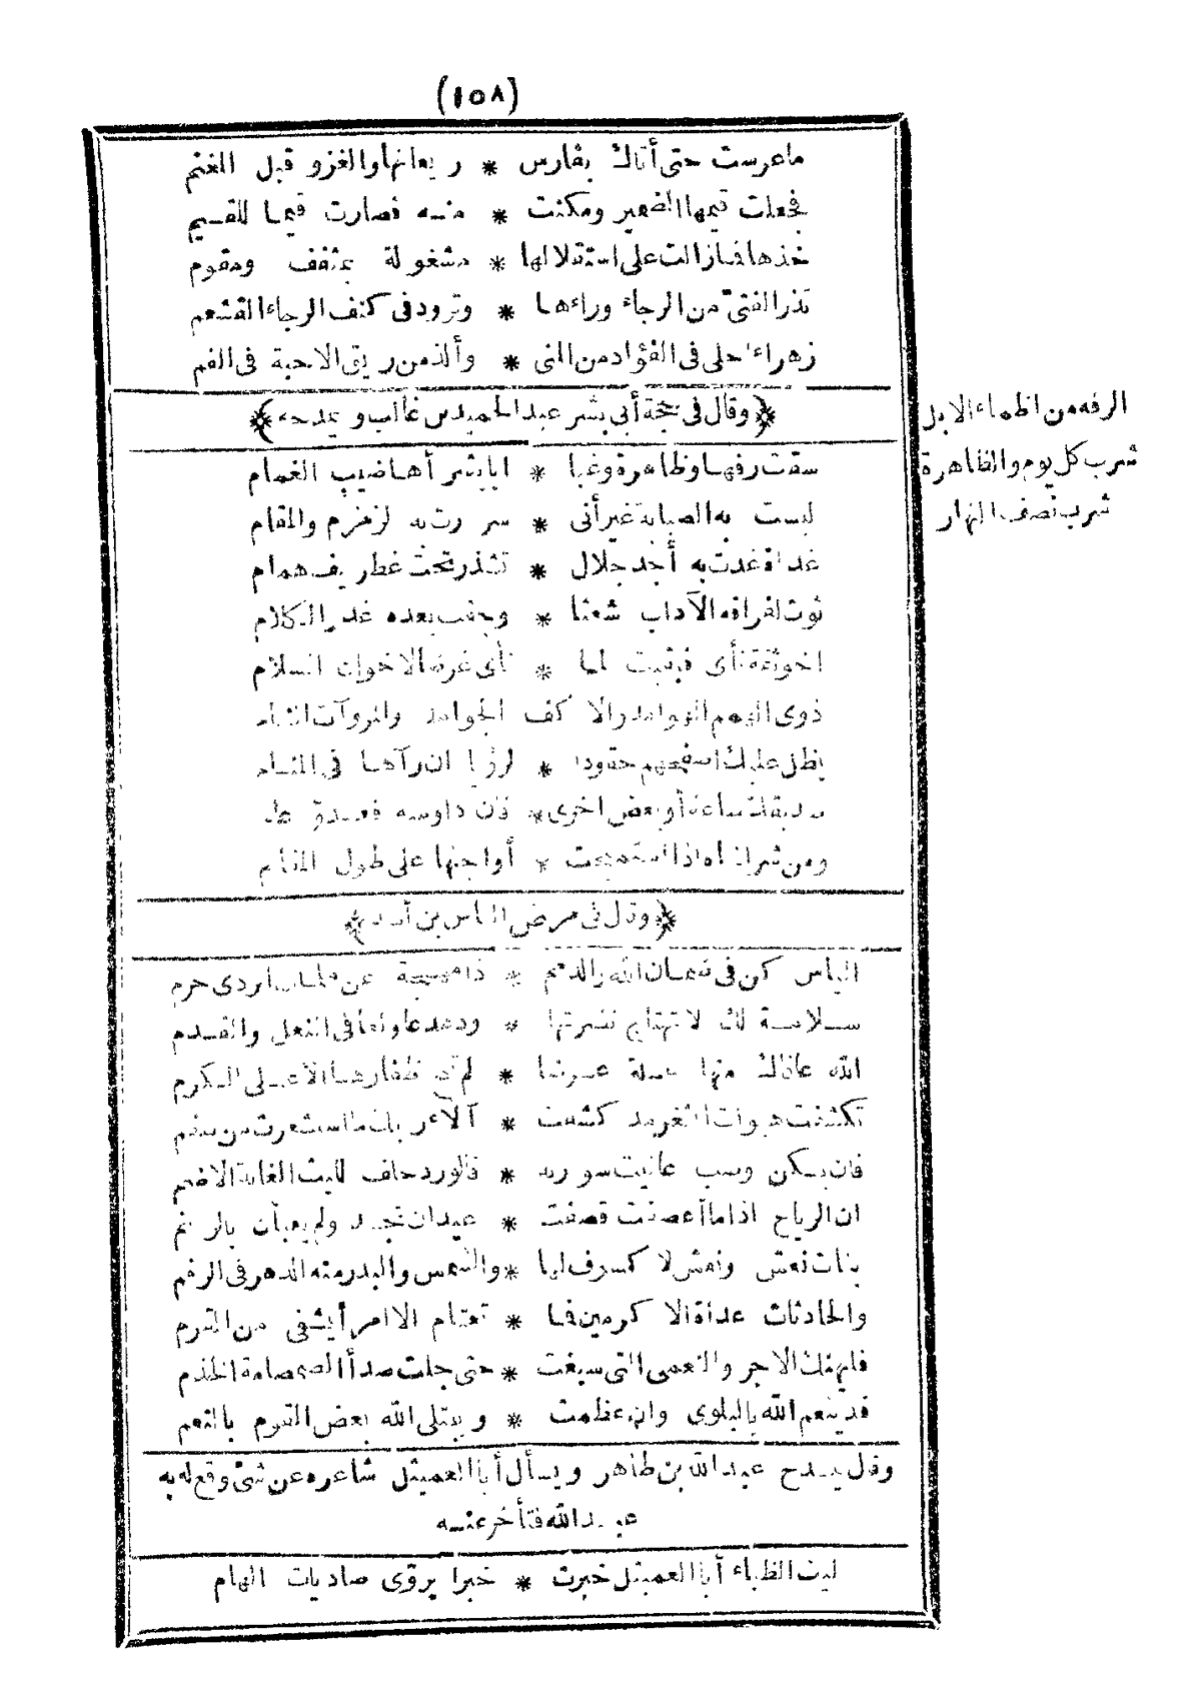 (١٥٨)
ما عرست حتى أتاك بفارس * ريعانها والغزو قبل المغنم
فجعلت قيمها الضمير ومكنت * منه فصارت قيما للقسيم
خذها فما زالت على استقلالها * مشغولة بمثقف ومقوم
تذر الفتى من الرجاء وراءها * وترود فى كنف الرجاء القشعم
زهراء احلى فى الفؤاد من المنى * وألذ من ريق الاحبة فى الفم
﴿وقال فى حجة أبى بشر عبد الحميد بن غالب ويمدحه﴾
سقت رفها وظاهرة وغبا * ابا بشر أهاضيب الغمام
ليست به الصبابة غير أنى * سررت به لزمزم والمقام
غداة غدت به أجد جلال * تشذر تحت غطريف همام
ثوت لفراقه الآداب شعثا * وجفت بعده غدر الكلام
اخو ثقة نأى فبقيت لما * نأى غرضا لاخوان السلام
ذوى الهمم الهوامد والاكف الجوامد والمروآت النيام
يظل عليك اصفحهم حقودا * لرؤيا ان رآها فى المنام
ومن شر المياه اذا استميحت * أواجنها على طول المقام
﴿وقال فى مرض الياس بن أسد﴾
الياس كن فى ضمان الله والذمم * ذا مهجة عن ملمات الردى حرم
سلامة لك لا تهتاج نضرتها * ودعدعا ولعا فى النعل والقدم
الله عافاك منها علة عرضا * لم تنح أظفارها الا على الكرم
تكشفت هبوات الثغر مذ كشفت * آلاء ربك ما استشعرت من سقم
فان يكن وصب عانيت سورته * فالورد حلف لليث الغابة الاضم
ان الرياح اذا ما أعصفت قصفت * عيدان نجد ولم يعبأن بالرتم
بنات نعش ونعش لا كسوف لها * والشمس والبدر منه الدهر فى الرقم
والحادثات عداة الاكرمين فما * تعتام الا امرأ يشفى من القرم
فليهنك الاجر والنعمى التى سبغت * حتى جلت صدأ الصمصامة الخذم
قد ينعم الله بالبلوى وان عظمت * ويبتلى الله بعض القوم بالنعم
وقال يمدح عبد الله بن طاهر ويسأل أبا العميثل شاعره عن شئ وقع له به
عبد الله فتأخر عنه
ليت الظباء أبا العميثل خبرت * خبرا يروّى صاديات الهام
الرفه من اظماء الابل
شرب كل يوم والظاهرة
شرب نصف النهار